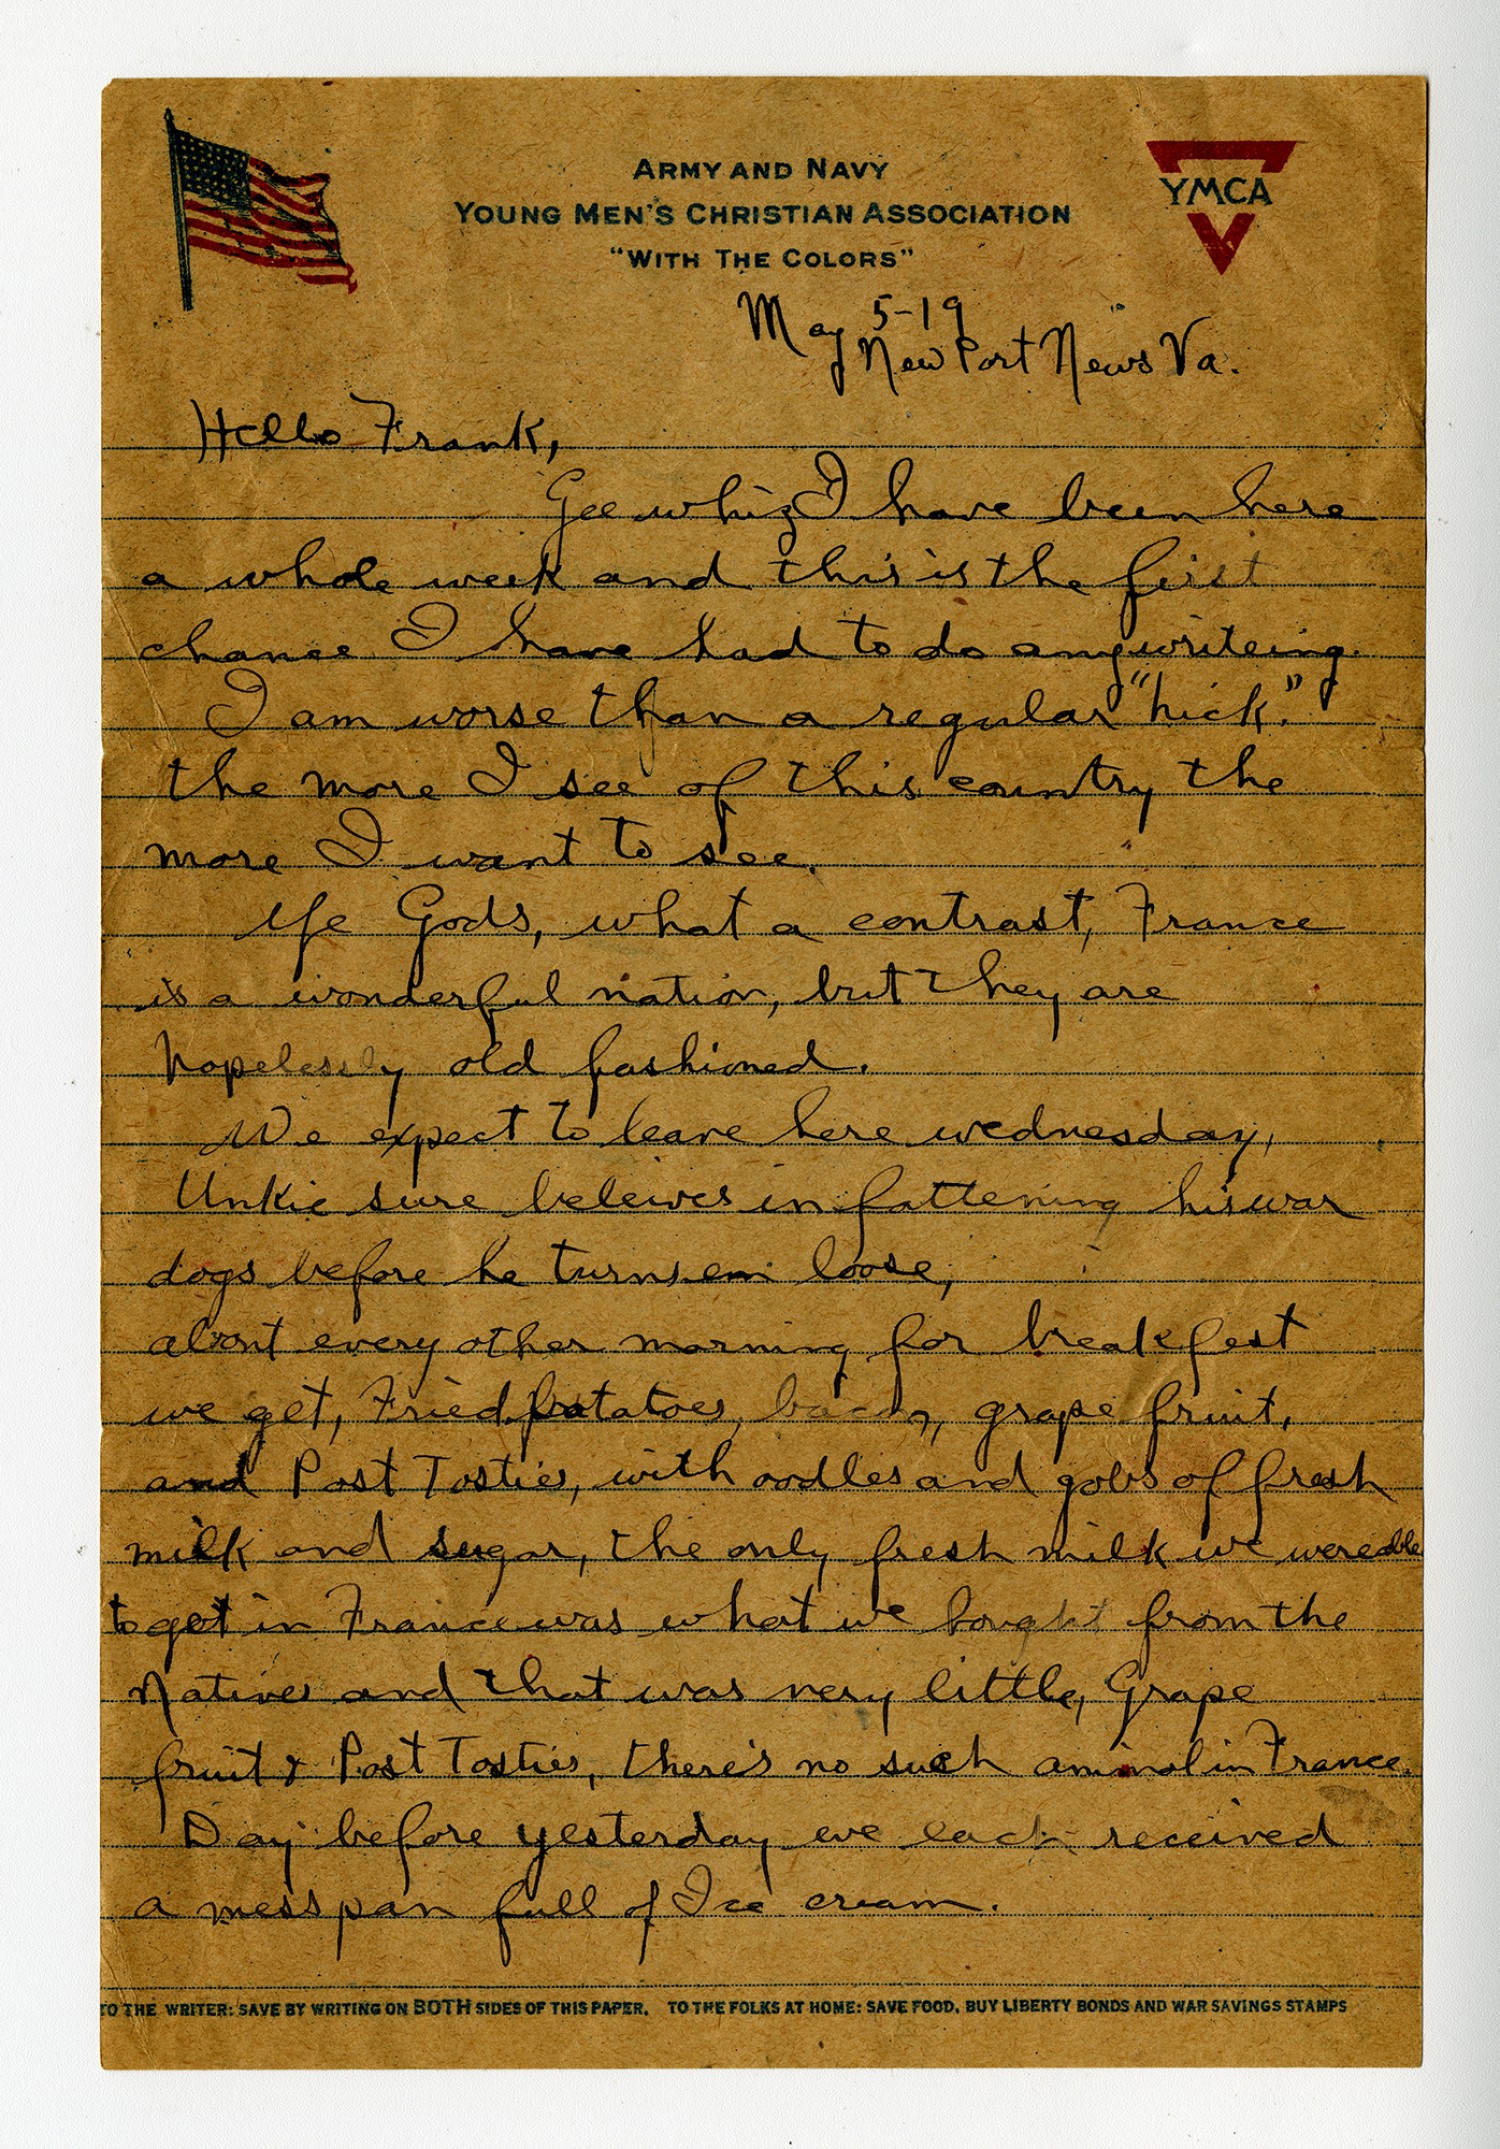 ARMY AND NAVY
YOUNG MEN'S CHRISTIAN ASSOCIATION
"WITH THE COLORS"
YMCA
May 5-19
New Port News Va.
Hello Frank,
Gee whiz I have been here
a whole week and this is the first
chance I have had to do any writeing.
I am worse than a regular "hick."
the more I see of this country the
more I want to see.
Ye Gods, what a contrast, France
is a wonderful nation, but they are
hopelessly old fashioned.
We expect to leave here wednesday,
Unkie sure beleives in fattening his war
dogs before he turns em loose,
about every other morning for breakfest
we get, Fried potatoes, bacon, grape fruit,
and Post Tosties, with oodles and gobs of fresh
milk and sugar, the only fresh milk we were able
to get in France was what we bought from the
Natives and that was very little, Grape
fruit & Post Tosties, there's no such aminal in France.
Day before yesterday we each received
a mess pan full of Ice cream.
TO THE WRITER: SAVE BY WRITING ON BOTH SIDES OF THIS PAPER. TO THE FOLKS AT HOME: SAVE FOOD, BUY LIBERTY BONDS AND WAR SAVINGS STAMPS